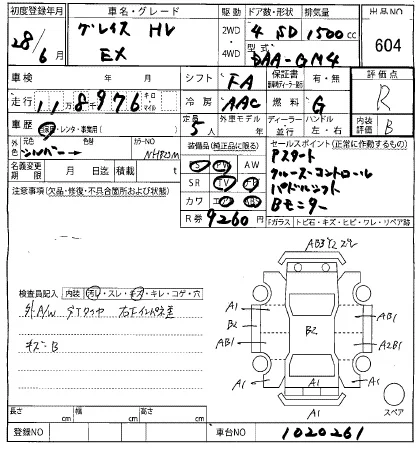 初度登録年月 車名・グレード 駆動 ドア数・形状 排気量 出品NO
28/6 グレイス HV EX 2WD・4WD 4 SD 1500cc 604
型式 DAA-GM4
車検 年 月 シフト FA 保証書 有・無 評価点 R
走行 11万8千976 キロ マイル 冷房 AAC 燃料 G
車歴 自家用・レンタ・事業用( ) 定員 5人 外車モデル 年 ディーラー・並行 ハンドル 左・右 内装評価 B
元色 シルバー 色替 カラーNO NH823M
名義変更期限 月 日迄 積載 t
装備品(純正品に限る) セールスポイント(正常に作動するもの)
S PW AW Pスタート
SR TV ナビ クルーズコントロール
カワ エア パドルシフト
R券 9260円 Bモニター
注意事項(欠品・修復・不具合箇所および状態)
Fガラス トビ石・キズ・ヒビ・ワレ・リペア跡
検査員記入 内装 汚れ・スレ・キズ・キレ・コゲ・穴
外A/W
キズ・B
A1 A1
B2 B2 AB1
AB1 A2B1
A1 A1 A1
A1 スペア
長さ cm 幅 cm 高さ cm
登録NO 車台NO 1020261